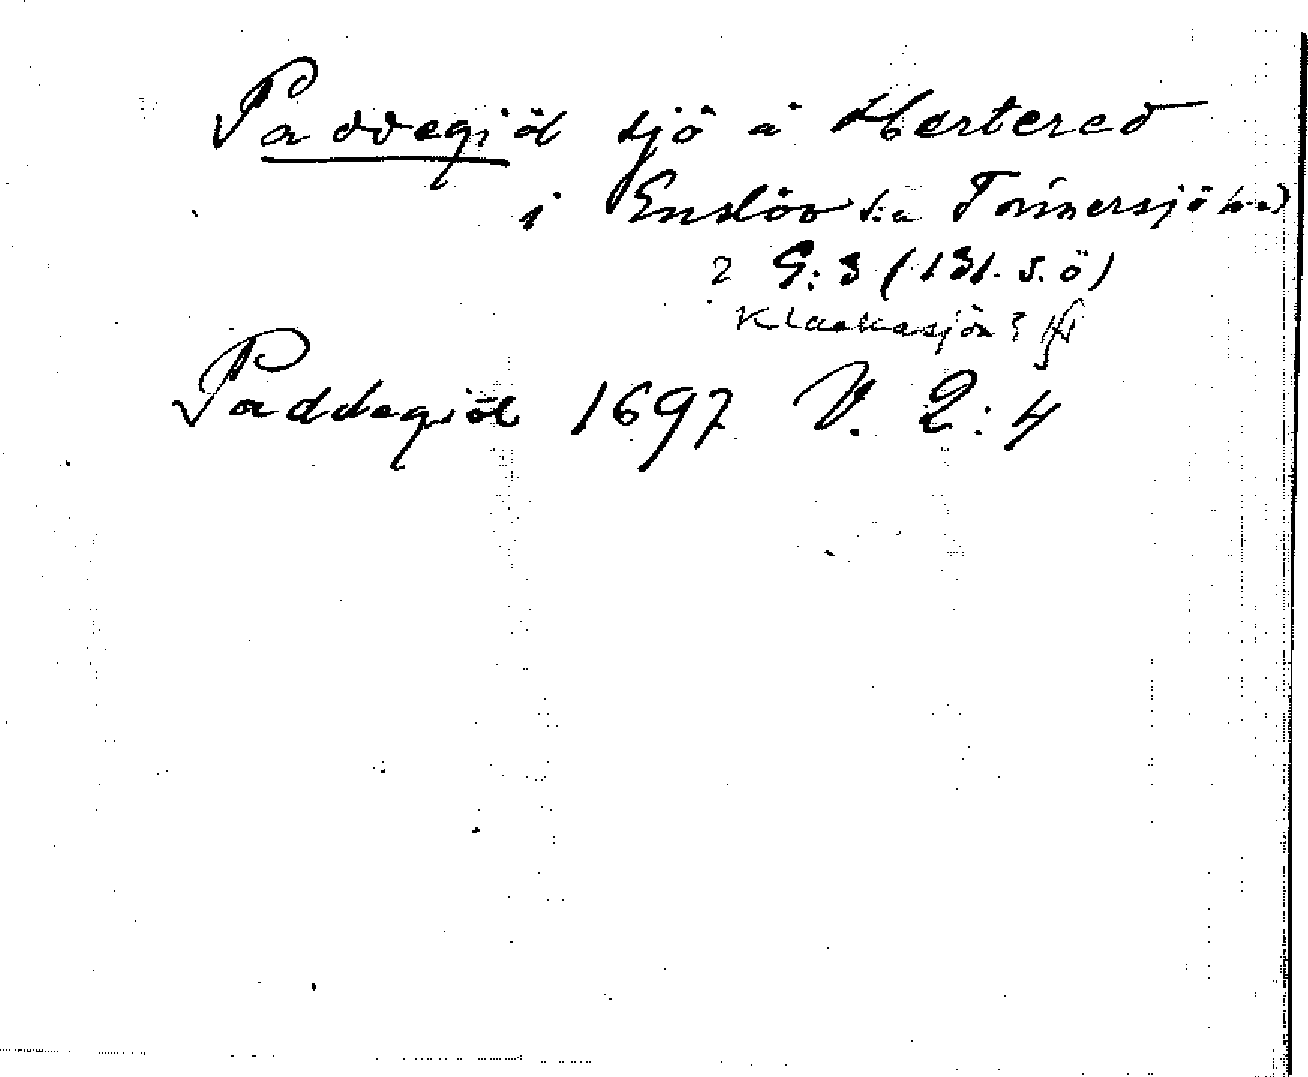 Paddegiöl sjö å Hertered
i Enslöv s:n Tönnersjö hd
2 G:3 (131. s. ö)
Klackasjön?
Paddegiöl 1697 V. 2:4